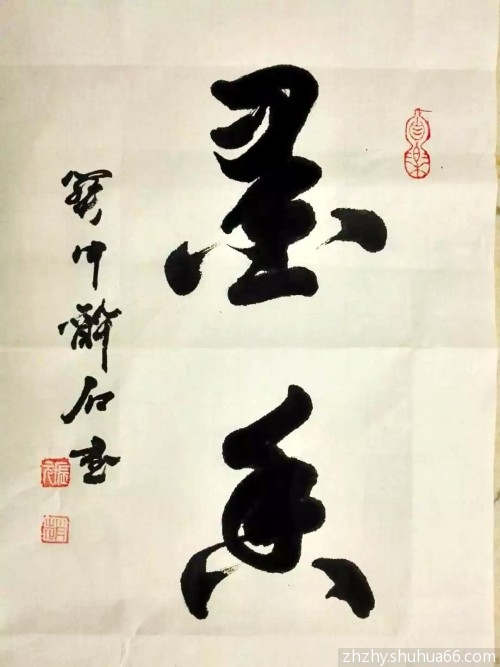 墨香
關中醉石書
zhzhyshuhua66.com